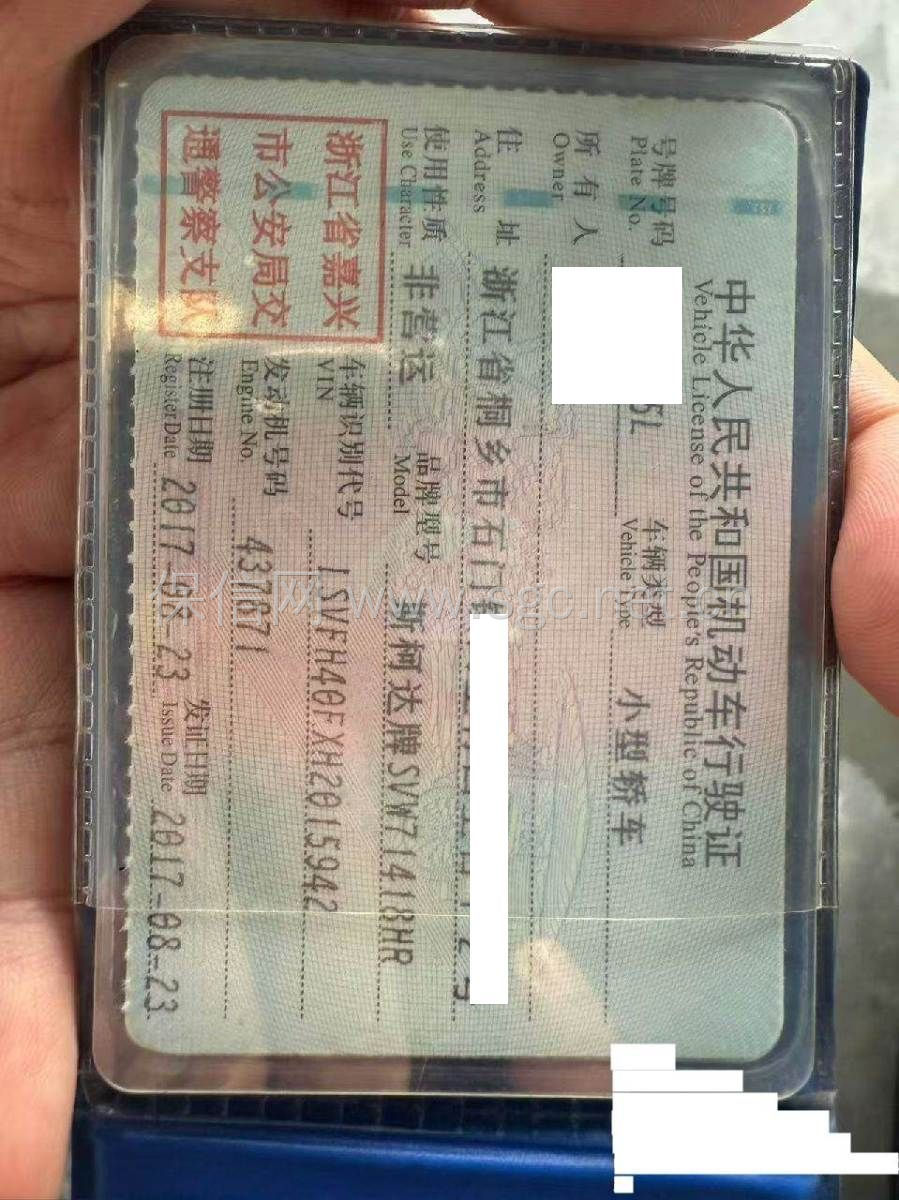 中华人民共和国机动车行驶证
Vehicle License of the People's Republic of China
号牌号码
Plate No.
5L
车辆类型
Vehicle Type
小型轿车
所有人
Owner
住址
Address
浙江省桐乡市石门
使用性质
Use Character
非营运
品牌型号
Model
斯柯达牌SVW71418HR
浙江省嘉兴
市公安局交
通警察支队
车辆识别代号
VIN
LSVFH40FXH2015942
发动机号码
Engine No.
437671
注册日期
Register Date
2017-08-23
发证日期
Issue Date
2017-08-23
保信网 www.sgc.net.cn